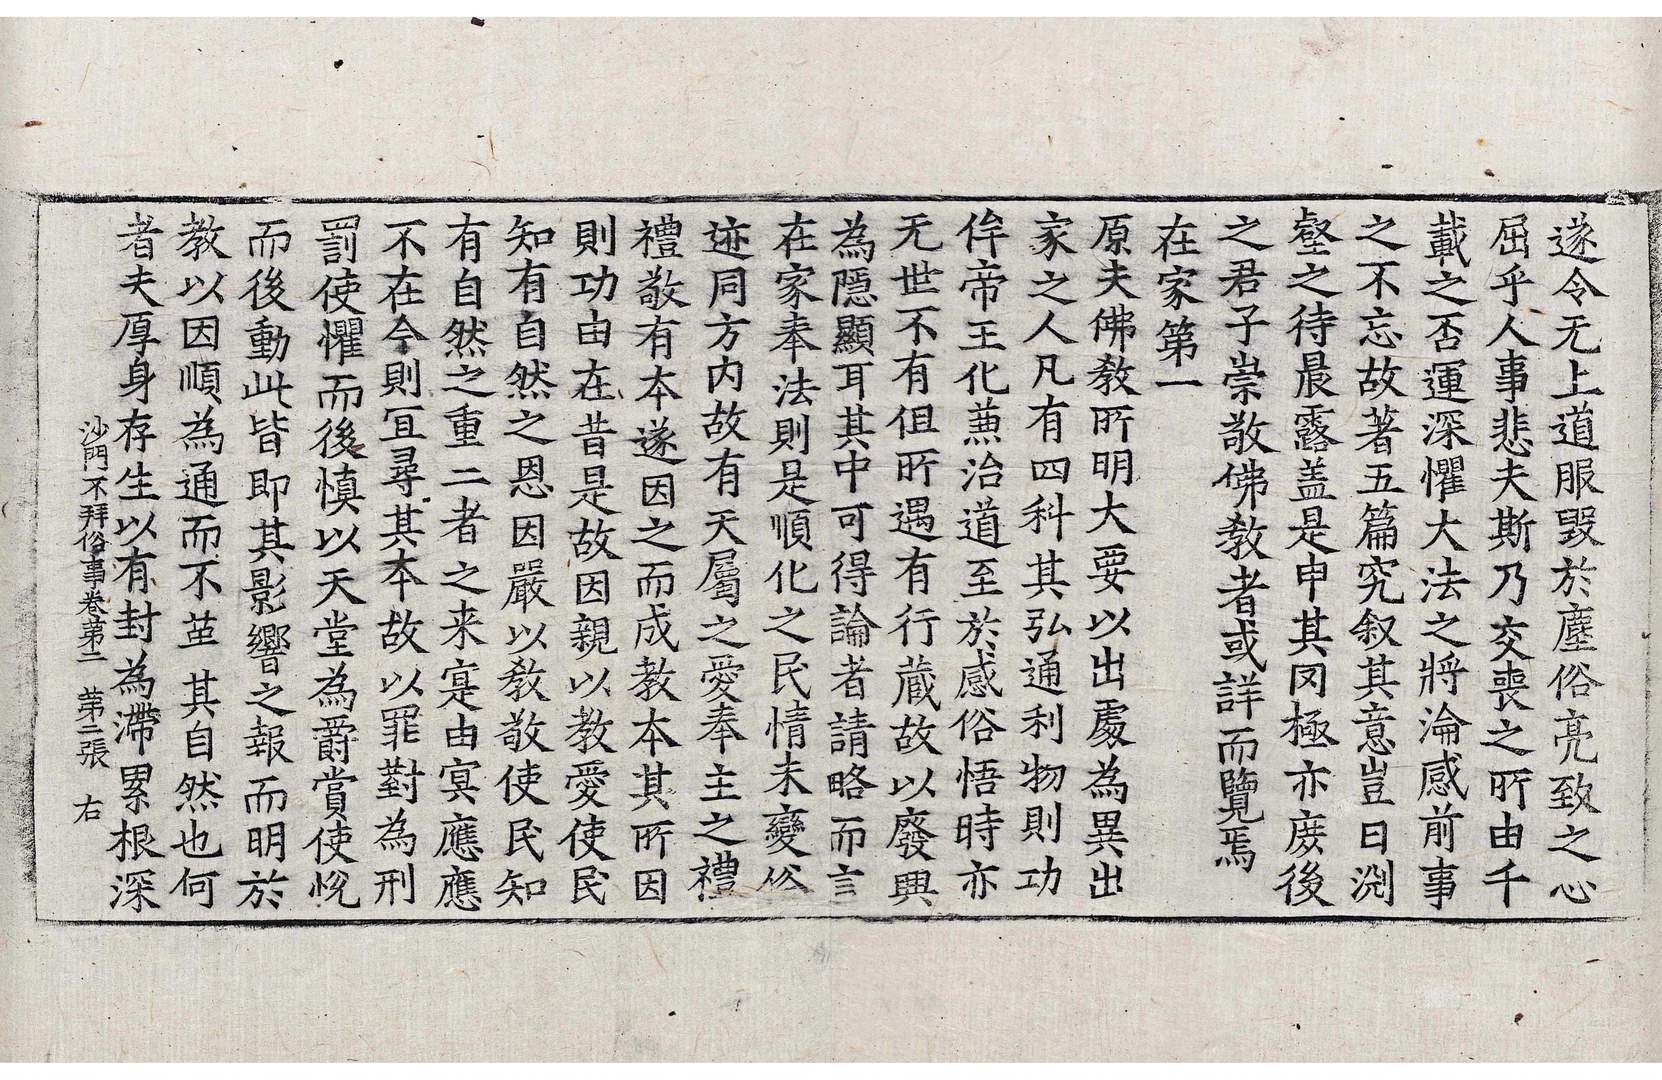 遂令无上道服毀於塵俗亮致之心
屈乎人事悲夫斯乃交喪之所由千
載之否運深懼大法之將淪感前事
之不忘故著五篇究叙其意豈曰淵
壑之待晨露盖是申其罔極亦庶後
之君子崇敬佛教者或詳而覽焉
在家第一
原夫佛教所明大要以出處為異出
家之人凡有四科其弘通利物則功
侔帝王化蕪治道至於感俗悟時亦
无世不有但所遇有行藏故以廢興
為隱顯耳其中可得論者請略而言
在家奉法則是順化之民情未變俗
迹同方內故有天屬之愛奉主之禮
禮敬有本遂因之而成教本其所因
則功由在昔是故因親以教愛使民
知有自然之恩因嚴以教敬使民知
有自然之重二者之来寔由冥應應
不在今則冝尋其本故以罪對為刑
罰使懼而後慎以天堂為爵賞使恱
而後動此皆即其影響之報而明於
教以因順為通而不革其自然也何
者夫厚身存生以有封為滯累根深
沙門不拜俗事卷第二 第二張 右